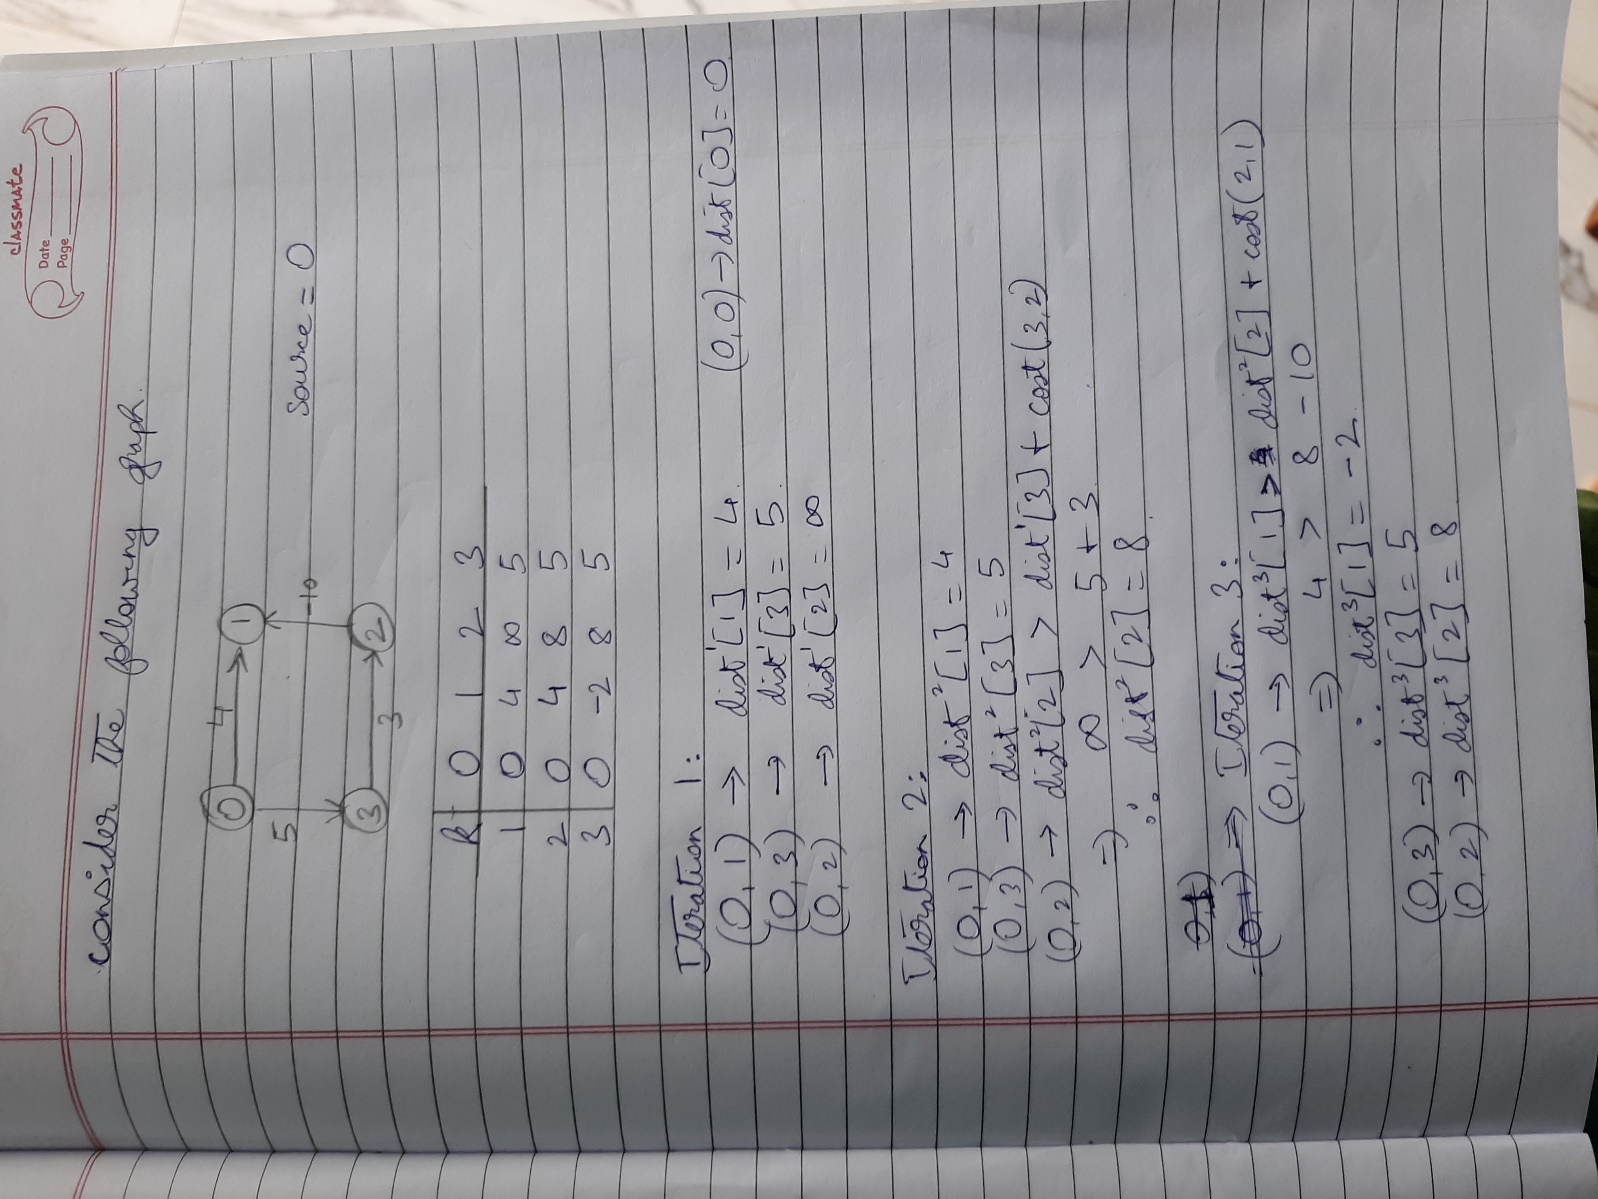 classmate
Date
Page
consider The following graph.
0 4 1
5 -10 Source = 0
3 3 2
k 0 1 2 3
1 0 4 ∞ 5
2 0 4 8 5
3 0 -2 8 5
Iteration 1:
(0,1) → dist¹[1] = 4. (0,0) → dist[0] = 0
(0,3) → dist¹[3] = 5.
(0,2) → dist¹[2] = ∞
Iteration 2:
(0,1) → dist²[1] = 4
(0,3) → dist²[3] = 5
(0,2) → dist²[2] > dist¹[3] + cost(3,2)
⇒ ∞ > 5 + 3
∴ dist²[2] = 8.
(0,1) ⇒ Iteration 3:
(0,1) → dist³[1] > dist²[2] + cost(2,1)
⇒ 4 > 8 - 10
∴ dist³[1] = -2.
(0,3) → dist³[3] = 5
(0,2) → dist³[2] = 8